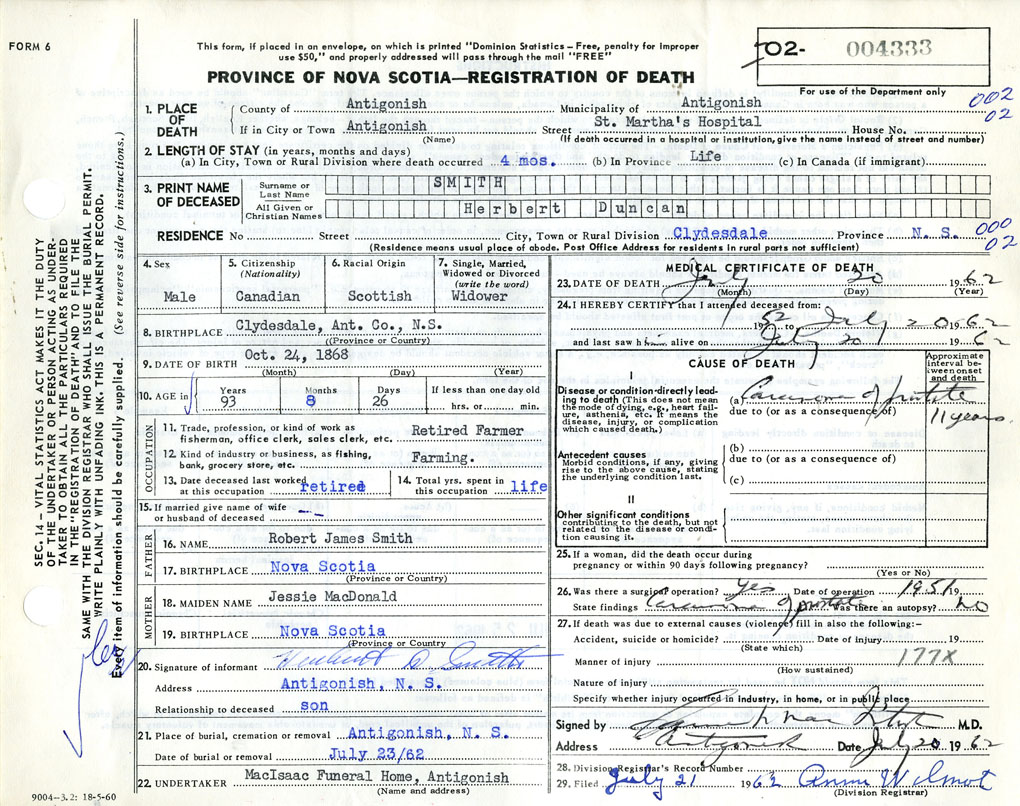 FORM 6
This form, if placed in an envelope, on which is printed "Dominion Statistics – Free, penalty for improper
use $50," and properly addressed will pass through the mail "FREE"
PROVINCE OF NOVA SCOTIA—REGISTRATION OF DEATH
02- 004333
For use of the Department only
002
02
1. PLACE OF DEATH
County of Antigonish Municipality of Antigonish
If in City or Town Antigonish Street St. Martha's Hospital House No.
(Name) (If death occurred in a hospital or institution, give the name instead of street and number)
2. LENGTH OF STAY (in years, months and days)
(a) In City, Town or Rural Division where death occurred 4 mos. (b) In Province Life (c) In Canada (if immigrant)
3. PRINT NAME OF DECEASED
Surname or Last Name SMITH
All Given or Christian Names Herbert Duncan
RESIDENCE No Street City, Town or Rural Division Clydesdale Province N. S.
000
02
(Residence means usual place of abode. Post Office Address for residents in rural parts not sufficient)
4. Sex
Male
5. Citizenship
(Nationality)
Canadian
6. Racial Origin
Scottish
7. Single, Married,
Widowed or Divorced
(write the word)
Widower
8. BIRTHPLACE Clydesdale, Ant. Co., N.S.
(Province or Country)
9. DATE OF BIRTH Oct. 24, 1868
(Month) (Day) (Year)
10. AGE in
Years Months Days If less than one day old
93 8 26 hrs. or min.
OCCUPATION
11. Trade, profession, or kind of work as
fisherman, office clerk, sales clerk, etc. Retired Farmer
12. Kind of industry or business, as fishing,
bank, grocery store, etc. Farming.
13. Date deceased last worked
at this occupation retired
14. Total yrs. spent in
this occupation life
15. If married give name of wife
or husband of deceased --
FATHER
16. NAME Robert James Smith
17. BIRTHPLACE Nova Scotia
(Province or Country)
MOTHER
18. MAIDEN NAME Jessie MacDonald
19. BIRTHPLACE Nova Scotia
(Province or Country)
20. Signature of informant Herbert D Smith
Address Antigonish, N. S.
Relationship to deceased son
21. Place of burial, cremation or removal Antigonish, N. S.
Date of burial or removal July 23/62
22. UNDERTAKER MacIsaac Funeral Home, Antigonish
(Name and address)
MEDICAL CERTIFICATE OF DEATH
23. DATE OF DEATH July 20 1962
(Month) (Day) (Year)
24. I HEREBY CERTIFY that I attended deceased from:
1952 to July 20 1962
and last saw him alive on July 20 1962
CAUSE OF DEATH
Approximate
interval be-
tween onset
and death
I
Disease or condition directly lead-
ing to death (This does not mean
the mode of dying, e.g., heart fail-
ure, asthenia, etc. It means the
disease, injury, or complication
which caused death.)
(a) Carcinoma of prostate
due to (or as a consequence of)
11 years.
Antecedent causes
Morbid conditions, if any, giving
rise to the above cause, stating
the underlying condition last.
(b)
due to (or as a consequence of)
(c)
II
Other significant conditions
contributing to the death, but not
related to the disease or condi-
tion causing it.
25. If a woman, did the death occur during
pregnancy or within 90 days following pregnancy?
(Yes or No)
26. Was there a surgical operation? Yes Date of operation 1951
State findings Carcinoma of prostate Was there an autopsy? no
27. If death was due to external causes (violence) fill in also the following:–
Accident, suicide or homicide? Date of injury 19
(State which)
Manner of injury 177X
(How sustained)
Nature of injury
Specify whether injury occurred in industry, in home, or in public place
Signed by M.D.
Address Antigonish Date July 20 1962
28. Division Registrar's Record Number
29. Filed July 21 1962 Anne Wilmot
(Division Registrar)
SEC. 14 – VITAL STATISTICS ACT MAKES IT THE DUTY
OF THE UNDERTAKER OR PERSON ACTING AS UNDER-
TAKER TO OBTAIN ALL THE PARTICULARS REQUIRED
IN THE "REGISTRATION OF DEATH" AND TO FILE THE
SAME WITH THE DIVISION REGISTRAR WHO SHALL ISSUE THE BURIAL PERMIT.
WRITE PLAINLY WITH UNFADING INK. THIS IS A PERMANENT RECORD.
Every item of information should be carefully supplied. (See reverse side for instructions.)
9004–3.2: 18-5-60